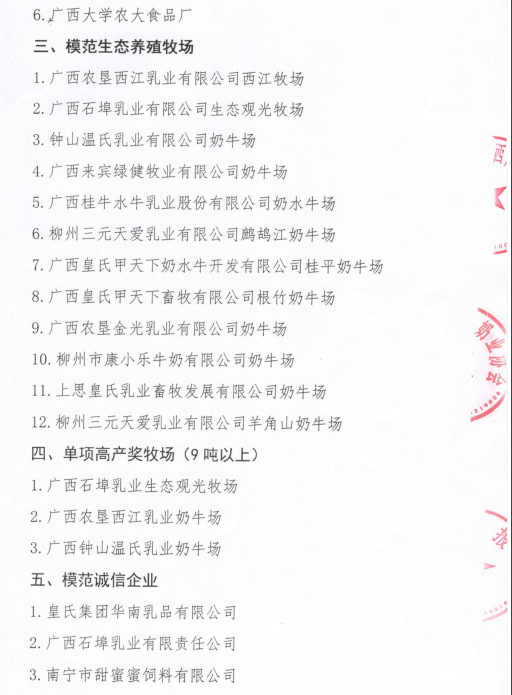 6.广西大学农大食品厂
三、模范生态养殖牧场
1.广西农垦西江乳业有限公司西江牧场
2.广西石埠乳业有限公司生态观光牧场
3.钟山温氏乳业有限公司奶牛场
4.广西来宾绿健牧业有限公司奶牛场
5.广西桂牛水牛乳业股份有限公司奶水牛场
6.柳州三元天爱乳业有限公司鹧鸪江奶牛场
7.广西皇氏甲天下奶水牛开发有限公司桂平奶牛场
8.广西皇氏甲天下畜牧有限公司根竹奶牛场
9.广西农垦金光乳业有限公司奶牛场
10.柳州市康小乐牛奶有限公司奶牛场
11.上思皇氏乳业畜牧发展有限公司奶牛场
12.柳州三元天爱乳业有限公司羊角山奶牛场
四、单项高产奖牧场（9 吨以上）
1.广西石埠乳业生态观光牧场
2.广西农垦西江乳业奶牛场
3.广西钟山温氏乳业奶牛场
五、模范诚信企业
1.皇氏集团华南乳品有限公司
2.广西石埠乳业有限责任公司
3.南宁市甜蜜蜜饲料有限公司
西
奶业协会